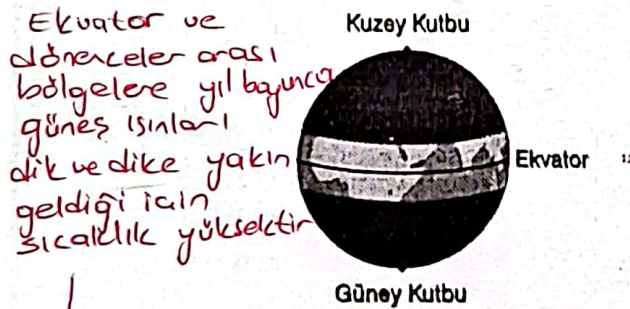 Ekvator ve
dönenceler arası
bölgelere yıl boyunca
güneş ışınları
dik ve dike yakın
geldiği için
sıcaklık yüksektir
Kuzey Kutbu
Ekvator
Güney Kutbu